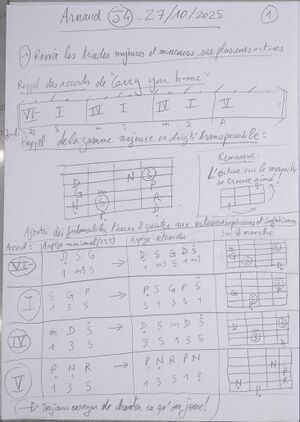 Arnaud (54) - 27/10/2025 (1)
-1) Revoir les triades majeures et mineures, sur plusieurs octaves
Rappel des accords de "Carry you home"
VI- IV I IV I IV I V
Rappel de la gamme majeure en doigté transposable :
D G N S P R
Remarque :
L'octave sur le manche
se trouve ainsi !
Ajouter des fondamentales, tierces et quintes aux octaves supérieures et inférieures
Accord : Arpège minimal (135) Arpège étendu Sur le manche
VI- D S G → D S G D S
1 m3 5 1 m3 5 1 5
I S G P → P S G P S
1 3 5 5 1 3 5 1
IV m D S → D S m D S
1 3 5 3 5 1 3 5
V P N R → P N R P N
1 3 5 1 3 5 1 3
→ Toujours essayer de chanter ce qu'on joue !